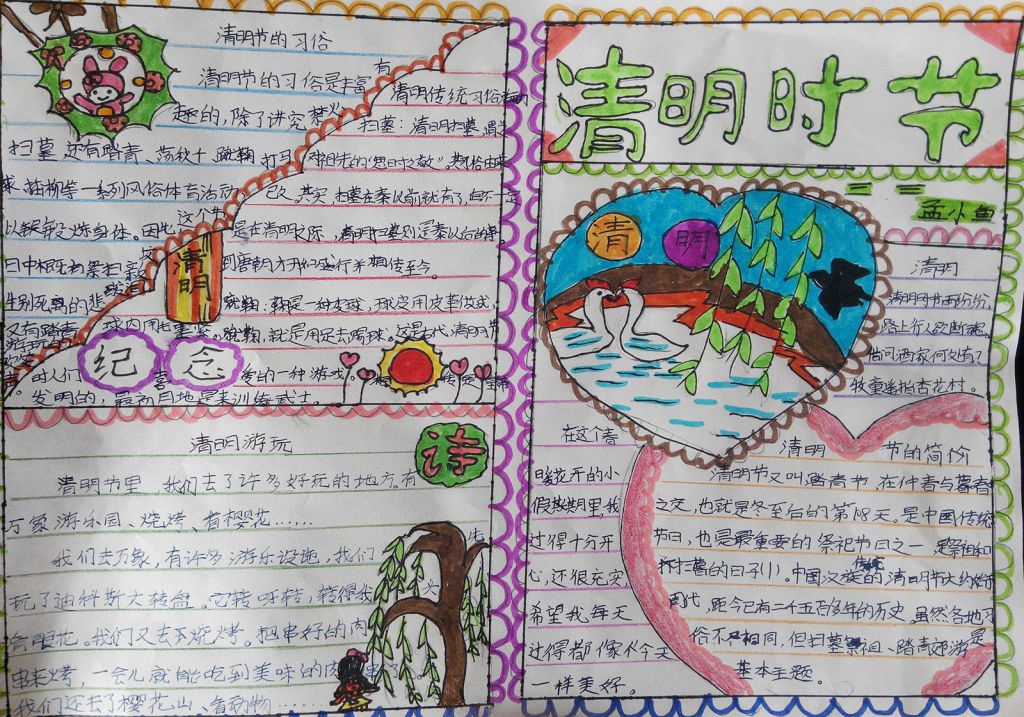 清明节的习俗
清明节的习俗是丰富有
趣的,除了讲究禁火
扫墓,还有踏青、荡秋千、蹴鞠、打马
球、插柳等一系列风俗体育活动
以锻炼身体。因此,这个节
日中既有祭扫新
生别死离的悲
又有踏青
清明
纪念
清明传统习俗
扫墓:清明扫墓,
对祖先的"思时之敬"。其习俗由来
已久。其实,扫墓在秦以前就有了,但不
是在清明之际,清明扫墓则是秦以后的事。
到唐朝才开始盛行并相传至今。
蹴鞠:鞠是一种皮球,球皮用皮革做成,
球内用毛塞紧。蹴鞠,就是用足去踢球。这是古代清明节
时人们喜爱的一种游戏。
发明的,最初目的是来训练武士。
清明游玩
诗
清明节里,我们去了许多好玩的地方。有
万象游乐园、烧烤、看樱花……
我们去万象,有许多游乐设施,我们
玩了迪科斯大转盘。它转呀转,转得我
冒眼花。我们又去了烧烤。把串好的肉
串来烤,一会儿就能吃到美味的肉串了
我们还去了樱花山、看动物……
清明时节
孟小鱼
清明
清明
清明时节雨纷纷,
路上行人欲断魂。
借问酒家何处有?
牧童遥指杏花村。
在这个春
暖花开的小
假期里,我
过得十分开
心,还很充实,
希望我每天
过得都像今天
一样美好。
清明节的简介
清明节又叫踏青节,在仲春与暮春
之交,也就是冬至后的第108天。是中国传统
节日,也是最重要的祭祀节日之一,是祭祖和
扫墓的日子。中国汉族传统的清明节大约始于
周代,距今已有二千五百多年的历史,虽然各地习
俗不相同,但扫墓祭祖、踏青郊游是
基本主题。